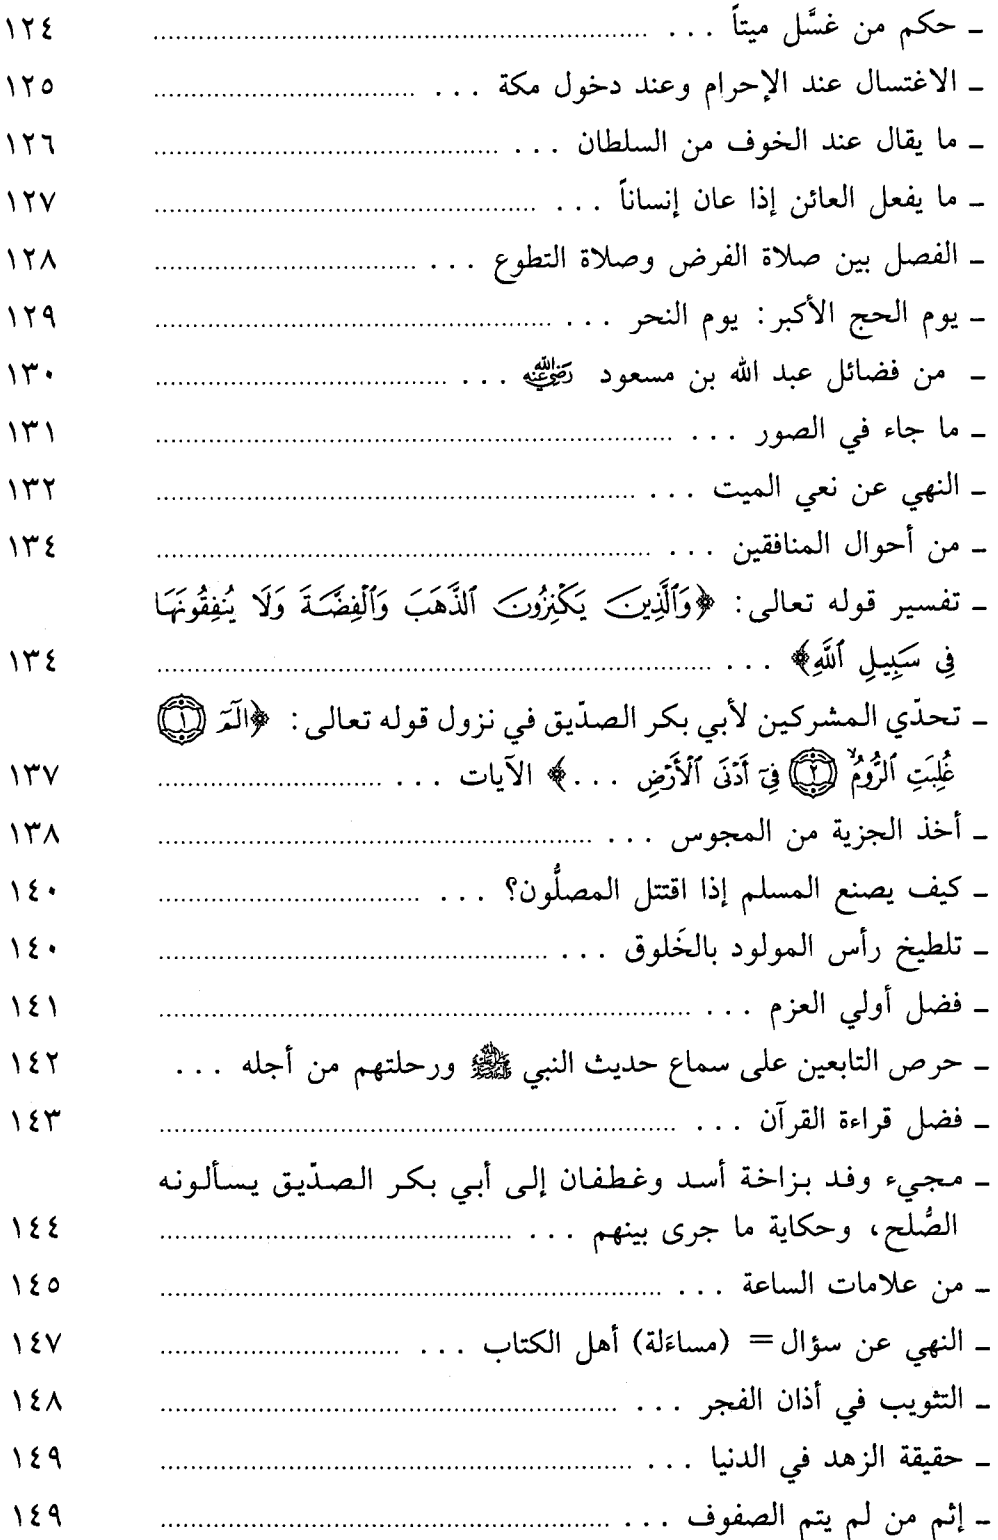 ـ حكم من غسَّل ميتاً . . . ١٢٤
ـ الاغتسال عند الإحرام وعند دخول مكة . . . ١٢٥
ـ ما يقال عند الخوف من السلطان . . . ١٢٦
ـ ما يفعل العائن إذا عان إنساناً . . . ١٢٧
ـ الفصل بين صلاة الفرض وصلاة التطوع . . . ١٢٨
ـ يوم الحج الأكبر: يوم النحر . . . ١٢٩
ـ من فضائل عبد الله بن مسعود رضي الله عنه . . . ١٣٠
ـ ما جاء في الصور . . . ١٣١
ـ النهي عن نعي الميت . . . ١٣٢
ـ من أحوال المنافقين . . . ١٣٤
ـ تفسير قوله تعالى: ﴿وَٱلَّذِينَ يَكْنِزُونَ ٱلذَّهَبَ وَٱلْفِضَّةَ وَلَا يُنفِقُونَهَا
فِي سَبِيلِ ٱللَّهِ﴾ . . . ١٣٤
ـ تحدّي المشركين لأبي بكر الصدّيق في نزول قوله تعالى: ﴿الٓمٓ ١
غُلِبَتِ ٱلرُّومُ ٢ فِيٓ أَدْنَى ٱلْأَرْضِ . . .﴾ الآيات . . . ١٣٧
ـ أخذ الجزية من المجوس . . . ١٣٨
ـ كيف يصنع المسلم إذا اقتتل المصلُّون؟ . . . ١٤٠
ـ تلطيخ رأس المولود بالخَلوق . . . ١٤٠
ـ فضل أولي العزم . . . ١٤١
ـ حرص التابعين على سماع حديث النبي ﷺ ورحلتهم من أجله . . . ١٤٢
ـ فضل قراءة القرآن . . . ١٤٣
ـ مجيء وفد بزاخة أسد وغطفان إلى أبي بكر الصدّيق يسألونه
الصُّلح، وحكاية ما جرى بينهم . . . ١٤٤
ـ من علامات الساعة . . . ١٤٥
ـ النهي عن سؤال = (مساءَلة) أهل الكتاب . . . ١٤٧
ـ التثويب في أذان الفجر . . . ١٤٨
ـ حقيقة الزهد في الدنيا . . . ١٤٩
ـ إثم من لم يتم الصفوف . . . ١٤٩